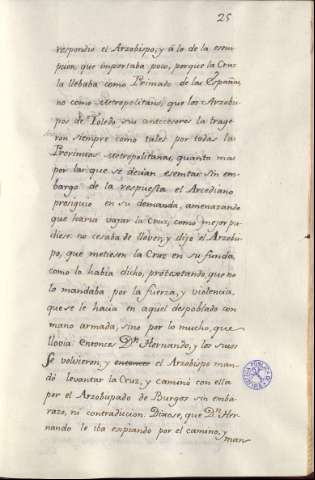 25
respondió el Arzobispo, y á lo de la esem-
pcion, que importaba poco, porque la Cruz
la llebaba como Primado de las Españas,
no como Metropolitano, que los Arzobis-
pos de Toledo sus antecesores la truge-
ron siempre como tales por todas las
Provincias Metropolitanas, quanto mas
por las que se decian esemtas: sin em-
bargo de la respuesta el Arcediano
prosiguio en su demanda, amenazando
que haria vajar la Cruz, como mejor pu-
diese: no cesaba de llover; y dijo el Arzobis-
po, que metiesen la Cruz en su funda,
como lo había dicho, protextando, que no
lo mandaba por la fuerza, y violencia,
que se le hacia en aquel despoblado con
mano armada, sino por lo mucho, que
llovia. Entonces Dn. Hernando, y los suios
se volvieron, y entonces el Arzobispo man-
dó levantar la Cruz, y caminó con ella
por el Arzobispado de Burgos sin emba-
razo, ni contradiccion. Dixose, que Dn. Her-
nando le iba expiando por el camino, y
man-